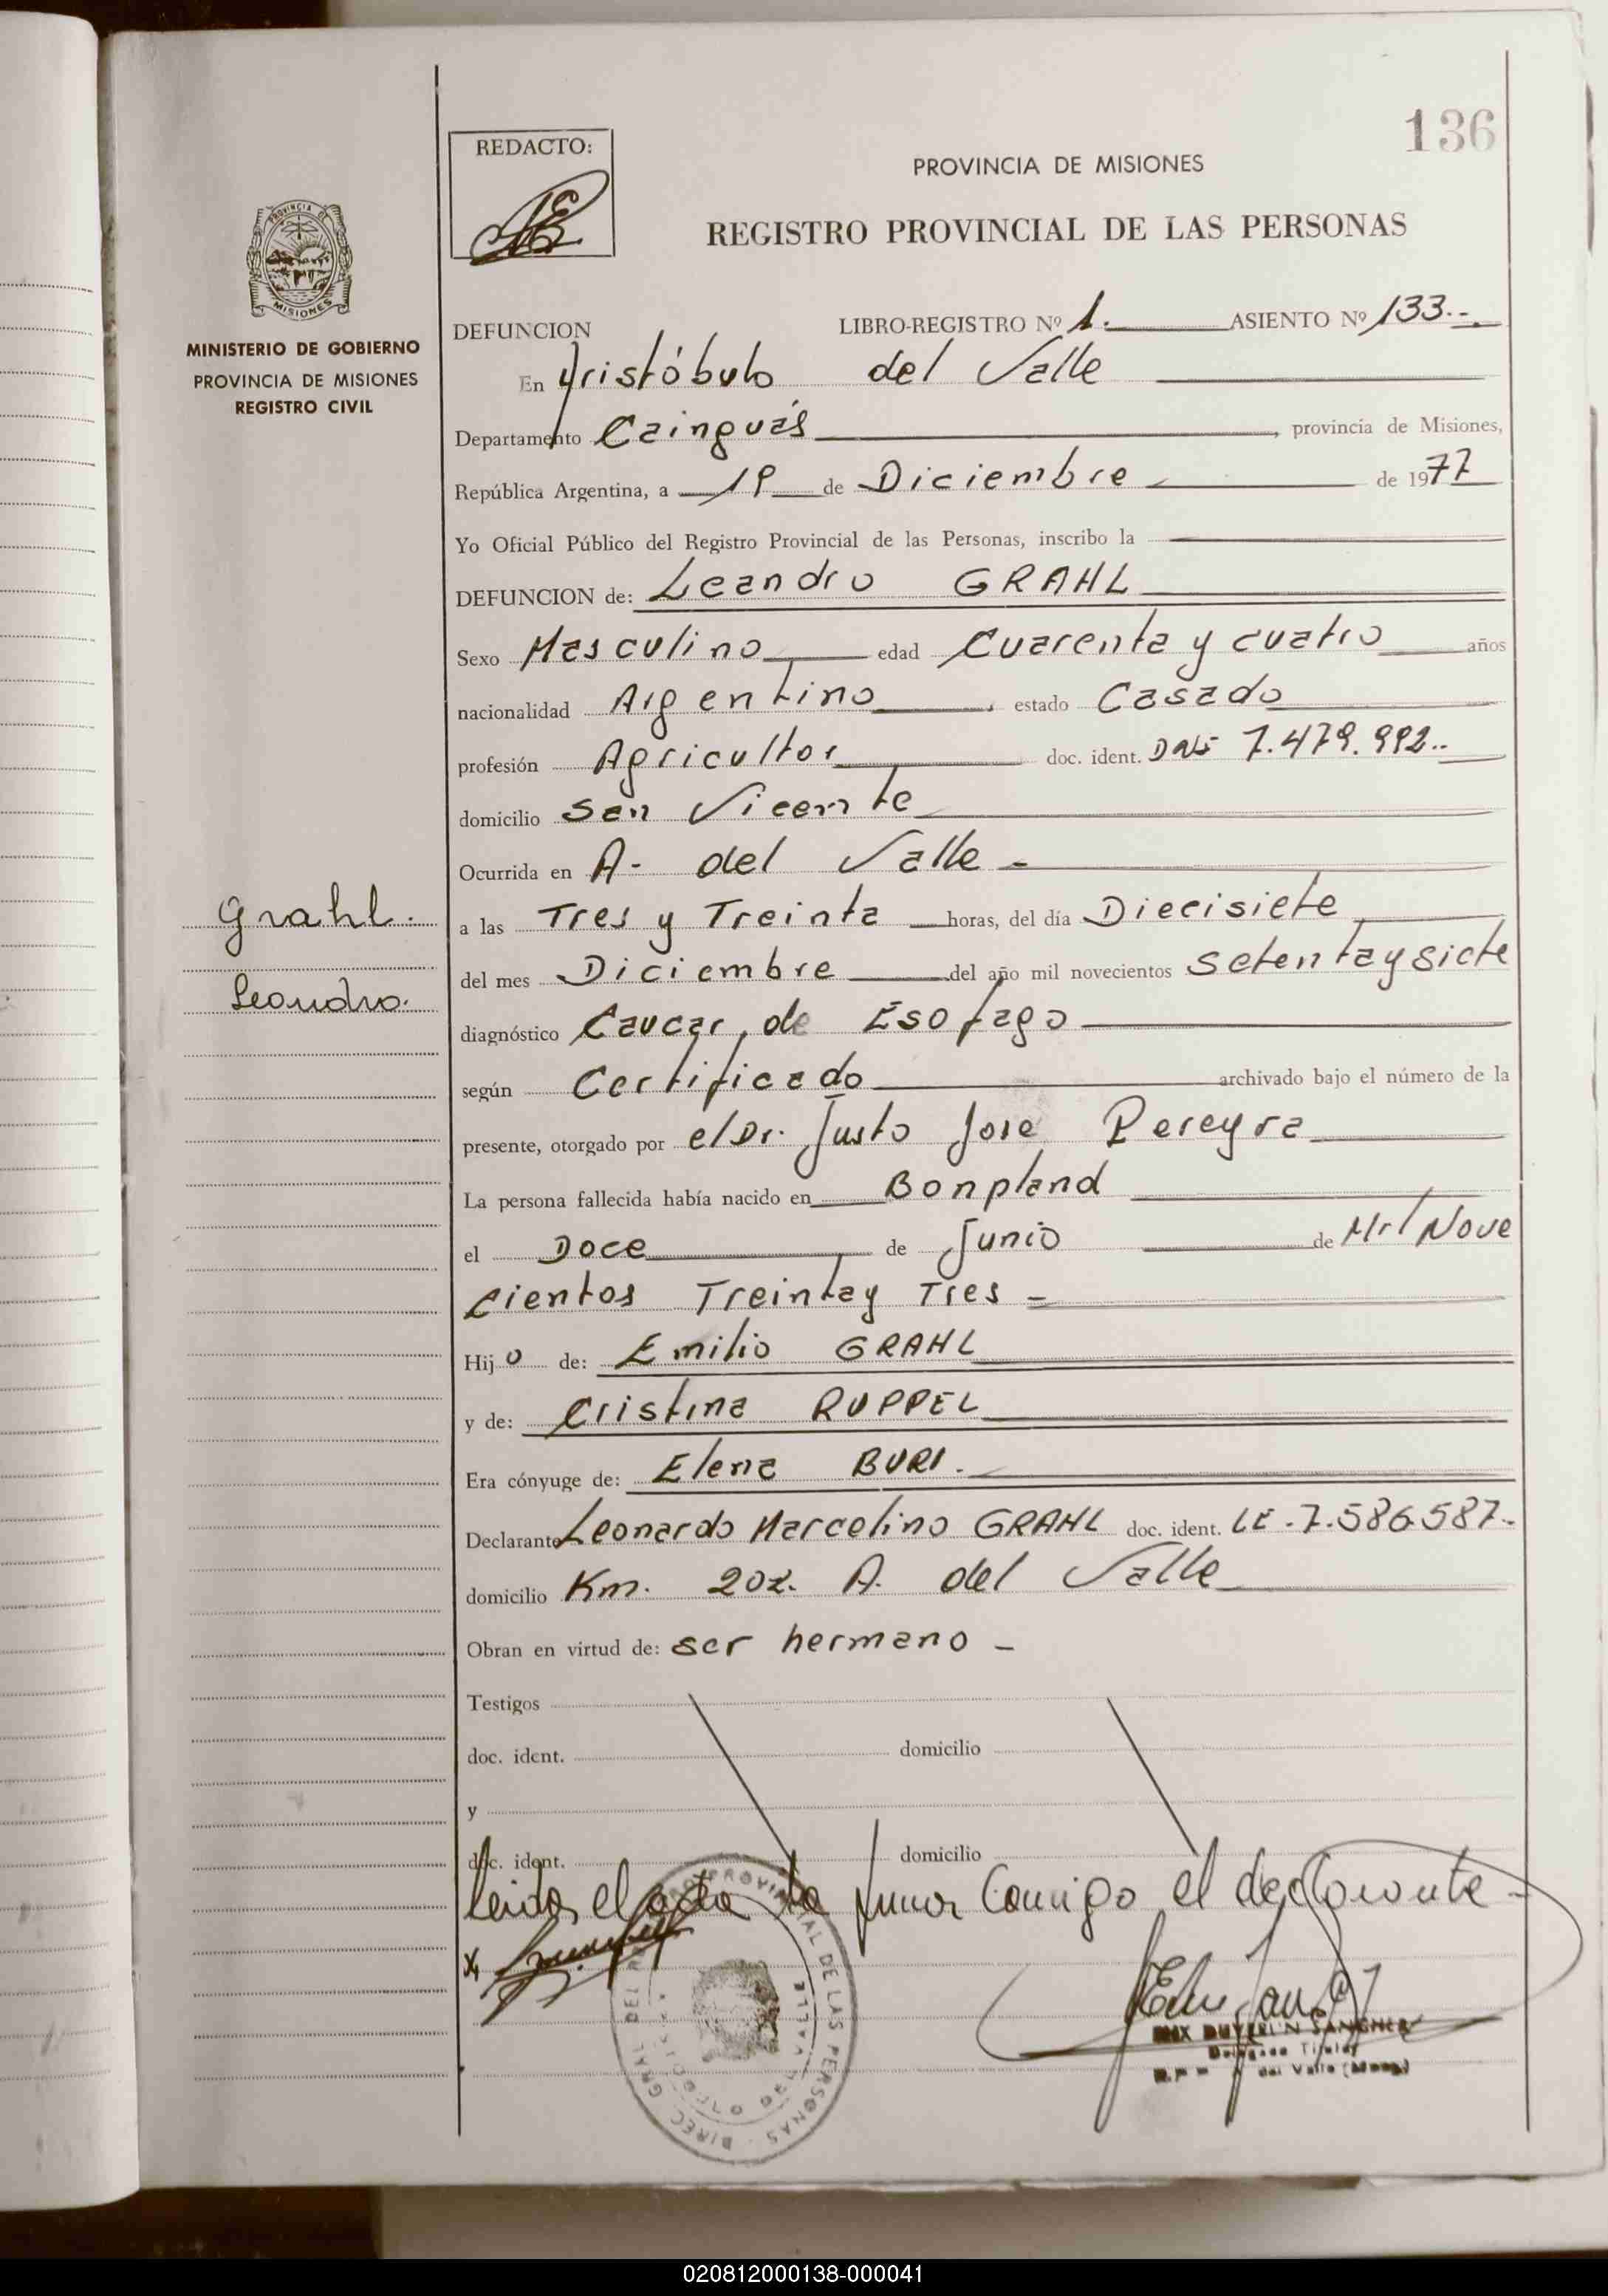 136
REDACTO:
PROVINCIA DE MISIONES
REGISTRO PROVINCIAL DE LAS PERSONAS
PROVINCIA DE
MISIONES
MINISTERIO DE GOBIERNO
PROVINCIA DE MISIONES
REGISTRO CIVIL
DEFUNCION LIBRO-REGISTRO Nº 1. ASIENTO Nº 133.-
En Aristóbulo del Valle
Departamento Cainguás, provincia de Misiones,
República Argentina, a 19 de Diciembre de 1977
Yo Oficial Público del Registro Provincial de las Personas, inscribo la
DEFUNCION de: Leandro GRAHL
Sexo Masculino edad Cuarenta y cuatro años
nacionalidad Argentino, estado Casado
profesión Agricultor doc. ident. DNI 7.479.992.-
domicilio San Vicente
Ocurrida en A. del Valle -
a las Tres y Treinta horas, del día Diecisiete
del mes Diciembre del año mil novecientos setentaysiete
diagnóstico Caucar, de Esofago
según Certificado archivado bajo el número de la
presente, otorgado por el Dr. Justo Jose Pereyra
La persona fallecida había nacido en Bonpland
el Doce de Junio de Mil Nove
cientos Treintay Tres -
Hijo de: Emilio GRAHL
y de: Cristina RUPPEL
Era cónyuge de: Elena BURI.
Declarante Leonardo Marcelino GRAHL doc. ident. LE.7.586587.-
domicilio Km. 202. A. del Valle
Obran en virtud de: ser hermano -
Testigos
doc. ident. domicilio
y
doc. ident. domicilio
leida el acta la firma Conmigo el declarante -
X
Grahl.
Leandro.
PROVINCIAL DE LAS PERSONAS - DIREC. GRAL. DEL
DEL VALLE
SANCHEZ
Titular
del Valle
020812000138-000041